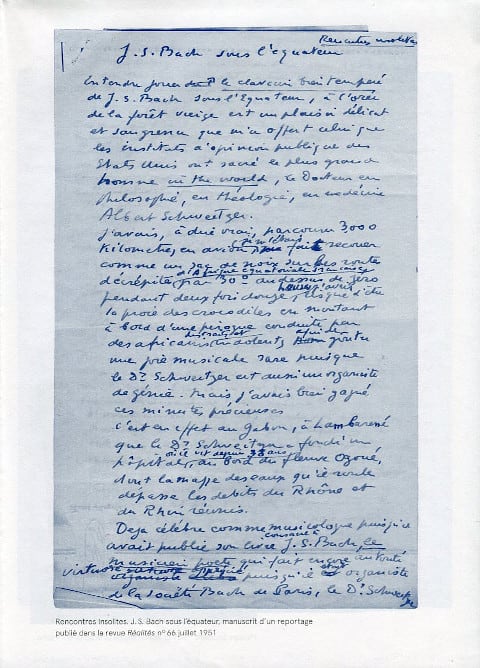 Rencontres insolites
J.S. Bach sous l'équateur
Entendre jouer le clavecin bien tempéré
de J.S. Bach sous l'Equateur, à l'orée
de la forêt vierge est un plaisir délicat
et que m'a offert celui que
les instituts d'opinion publique des
Etats Unis ont sacré le plus grand
homme in the world, le Docteur en
Philosophie, en théologie, en médecine
Albert Schweitzer.
J'avais, à dire vrai, parcouru 3000
Kilomètres, en avion, fait secouer
comme un sac de noix sur les route
d'Afrique équatoriale
décrépite par 30° au dessus de zéro
pendant deux fois douze heures, risqué d'être
la proie des crocodiles en montant
à bord d'une pirogue conduite par
des africains afin de
une joie musicale rare puisque
le Dr Schweitzer est aussi un organiste
de génie. Mais j'avais bien gagné
ces minutes précieuses
c'est en effet au Gabon, à Lambaréné
que le Dr Schweitzer a fondé un
où il vit depuis 38 ans
hôpital, au bord du fleuve Ogoué,
dont la masse des eaux qu'il roule
dépasse les débits du Rhône et
du Rhin réunis.
Deja célèbre comme musicologue puisqu'il
consacré à
avait publié son livre J.S. Bach, le
musicien poète qui fait encore autorité
virtuose
organiste puisqu'il organiste
de la société Bach de Paris, le Dr Schweitzer
Rencontres Insolites. J.S. Bach sous l'équateur, manuscrit d'un reportage
publié dans la revue Réalités n° 66 juillet 1951